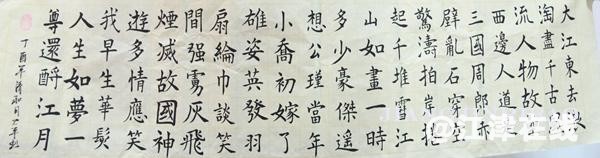 大江東去浪
淘盡千古風
流人物故壘
西邊人道是
三國周郎赤
壁亂石穿空
驚濤拍岸捲
起千堆雪江
山如畫一時
多少豪傑遥
想公瑾當年
小喬初嫁了
雄姿英發羽
扇綸巾談笑
間强虜灰飛
煙滅故國神
遊多情應笑
我早生華髮
人生如夢一
尊還酹江月
丁酉年清和月
江津在线